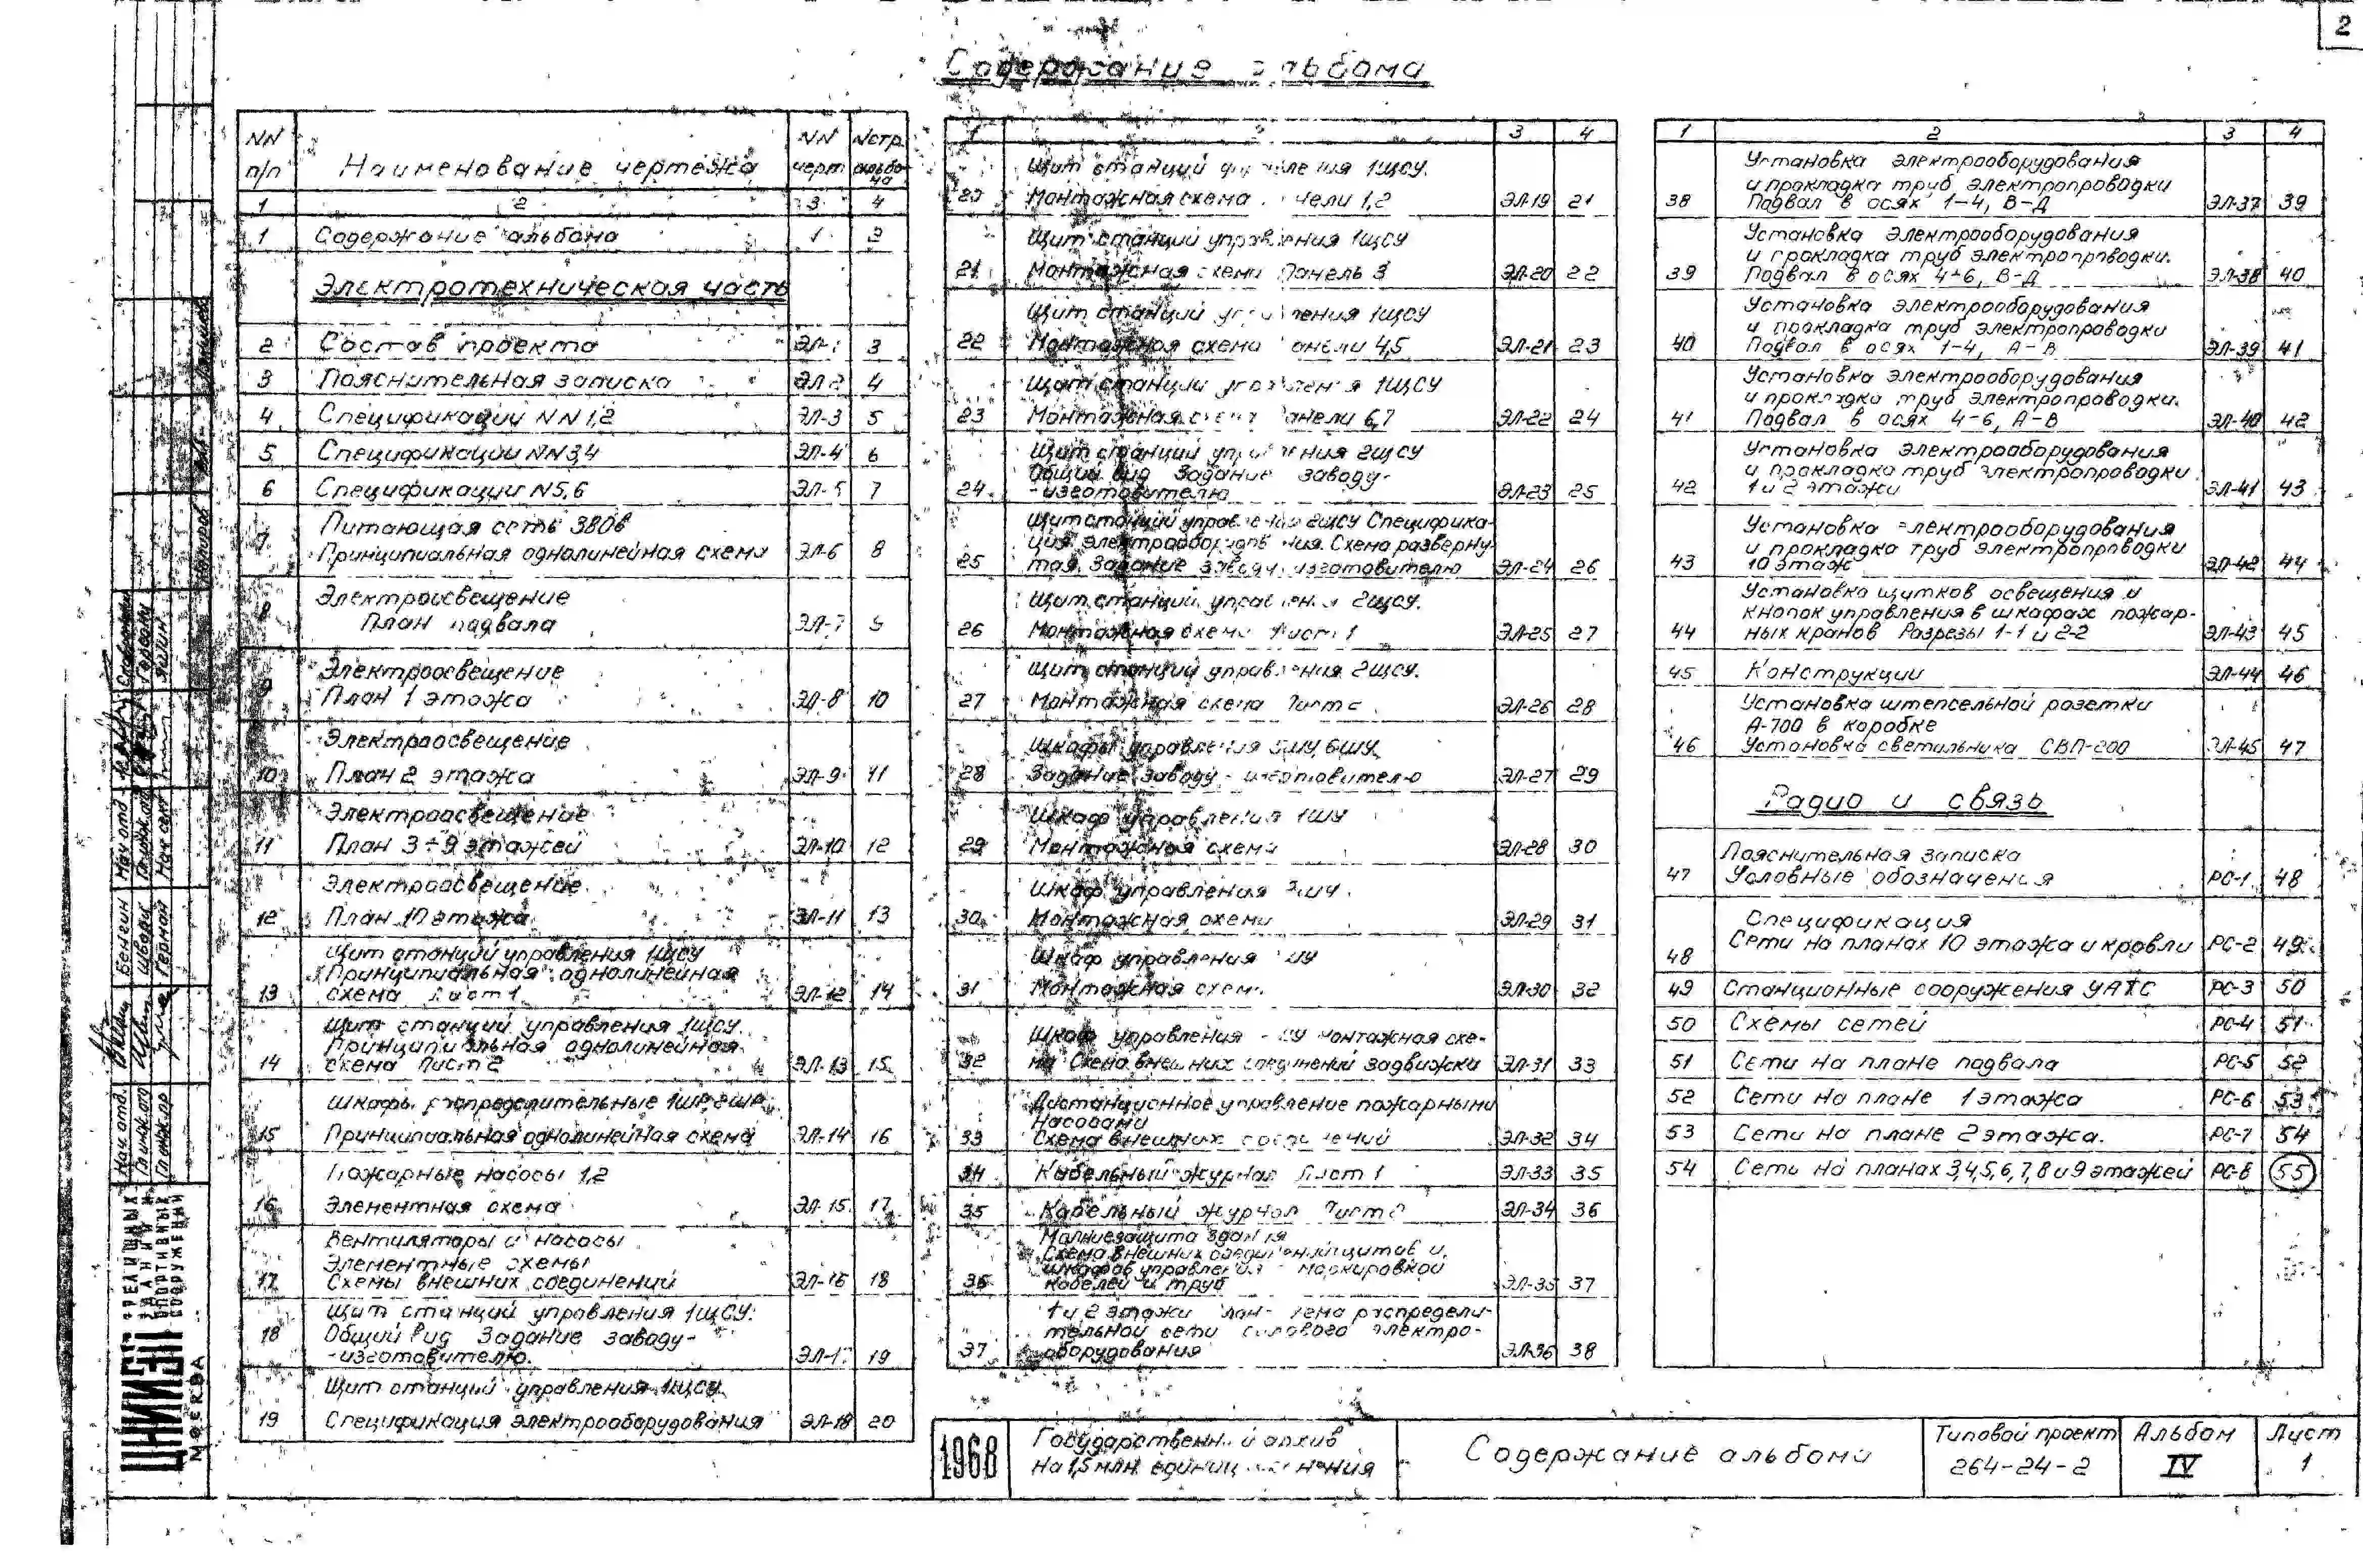 2
Содержание альбома
NN п/п
Наименование чертежа
NN черт
Nстр. альбома
1 2 3 4
1 Содержание альбома 1 2
Электротехническая часть
2 Состав проекта ЭЛ-1 3
3 Пояснительная записка ЭЛ-2 4
4 Спецификации NN 1,2 ЭЛ-3 5
5 Спецификации NN3,4 ЭЛ-4 6
6 Спецификации N5,6 ЭЛ-5 7
Питающая сеть 380в
7 Принципиальная однолинейная схема ЭЛ-6 8
Электроосвещение
8 План подвала ЭЛ-7 9
Электроосвещение
9 План 1 этажа ЭЛ-8 10
Электроосвещение
10 План 2 этажа ЭЛ-9 11
Электроосвещение
11 План 3÷9 этажей ЭЛ-10 12
Электроосвещение
12 План 10 этажа ЭЛ-11 13
Щит станций управления 1ЩСУ
Принципиальная однолинейная
13 схема Лист 1 ЭЛ-12 14
Щит станций управления 1ЩСУ.
Принципиальная однолинейная
14 схема Лист 2 ЭЛ-13 15
Шкафы распределительные 1ШР, 2ШР.
15 Принципиальная однолинейная схема ЭЛ-14 16
Пожарные насосы 1,2
16 Элементная схема ЭЛ-15 17
Вентиляторы и насосы
Элементные схемы
17 Схемы внешних соединений ЭЛ-16 18
Щит станций управления 1ЩСУ.
18 Общий вид Задание заводу-
-изготовителю. ЭЛ-17 19
Щит станций управления 1ЩСУ
19 Спецификация электрооборудования ЭЛ-18 20
1 2 3 4
Щит станций управления 1ЩСУ.
20 Монтажная схема Панели 1,2 ЭЛ-19 21
Щит станций управления 1ЩСУ
21 Монтажная схема Панель 3 ЭЛ-20 22
Щит станций управления 1ЩСУ
22 Монтажная схема Панели 4,5 ЭЛ-21 23
Щит станций управления 1ЩСУ
23 Монтажная схема Панели 6,7 ЭЛ-22 24
Щит станций управления 2ЩСУ
Общий вид Задание заводу-
24 -изготовителю ЭЛ-23 25
Щит станций управления 2ЩСУ Специфика-
ция электрооборудования. Схема разверну-
25 тая. Задание заводу изготовителю ЭЛ-24 26
Щит станций управления 2ЩСУ.
26 Монтажная схема Лист 1 ЭЛ-25 27
Щит станций управления 2ЩСУ.
27 Монтажная схема Лист 2 ЭЛ-26 28
Шкафы управления 5ШУ, 6ШУ
28 Задание заводу-изготовителю ЭЛ-27 29
Шкаф управления 1ШУ
29 Монтажная схема ЭЛ-28 30
Шкаф управления ШУ
30 Монтажная схема ЭЛ-29 31
Шкаф управления ШУ
31 Монтажная схема ЭЛ-30 32
Шкаф управления ШУ монтажная схе-
32 ма Схема внешних соединений задвижки ЭЛ-31 33
Дистанционное управление пожарными
насосами
33 Схема внешних соединений ЭЛ-32 34
34 Кабельный журнал Лист 1 ЭЛ-33 35
35 Кабельный журнал Лист 2 ЭЛ-34 36
Молниезащита здания
Схема внешних соединений щитов и
шкафов управления с маркировкой
36 кабелей и труб ЭЛ-35 37
1 и 2 этажи План-схема распредели-
тельной сети силового электро-
37 оборудования ЭЛ-36 38
1 2 3 4
Установка электрооборудования
и прокладка труб электропроводки
38 Подвал в осях 1-4, В-Д ЭЛ-37 39
Установка электрооборудования
и прокладка труб электропроводки.
39 Подвал в осях 4÷6, В-Д ЭЛ-38 40
Установка электрооборудования
и прокладка труб электропроводки
40 Подвал в осях 1-4, А-В ЭЛ-39 41
Установка электрооборудования
и прокладка труб электропроводки.
41 Подвал в осях 4-6, А-В ЭЛ-40 42
Установка электрооборудования
и прокладка труб электропроводки
42 1 и 2 этажи ЭЛ-41 43
Установка электрооборудования
и прокладка труб электропроводки
43 10 этаж ЭЛ-42 44
Установка щитков освещения и
кнопок управления в шкафах пожар-
44 ных кранов Разрезы 1-1 и 2-2 ЭЛ-43 45
45 Конструкции ЭЛ-44 46
Установка штепсельной розетки
А-700 в коробке
46 Установка светильника СВП-200 ЭЛ-45 47
Радио и связь
Пояснительная записка
47 Условные обозначения РС-1 48
Спецификация
48 Сети на планах 10 этажа и кровли РС-2 49
49 Станционные сооружения УАТС РС-3 50
50 Схемы сетей РС-4 51
51 Сети на плане подвала РС-5 52
52 Сети на плане 1 этажа РС-6 53
53 Сети на плане 2 этажа. РС-7 54
54 Сети на планах 3,4,5,6,7,8 и 9 этажей РС-8 55
1968
Государственный архив
на 1,5 млн. единиц хранения
Содержание альбома
Типовой проект
264-24-2
Альбом
IV
Лист
1
ЦНИИЭП
ЗРЕЛИЩНЫХ
ЗДАНИЙ И
СПОРТИВНЫХ
СООРУЖЕНИЙ
МОСКВА
Нач. отд.